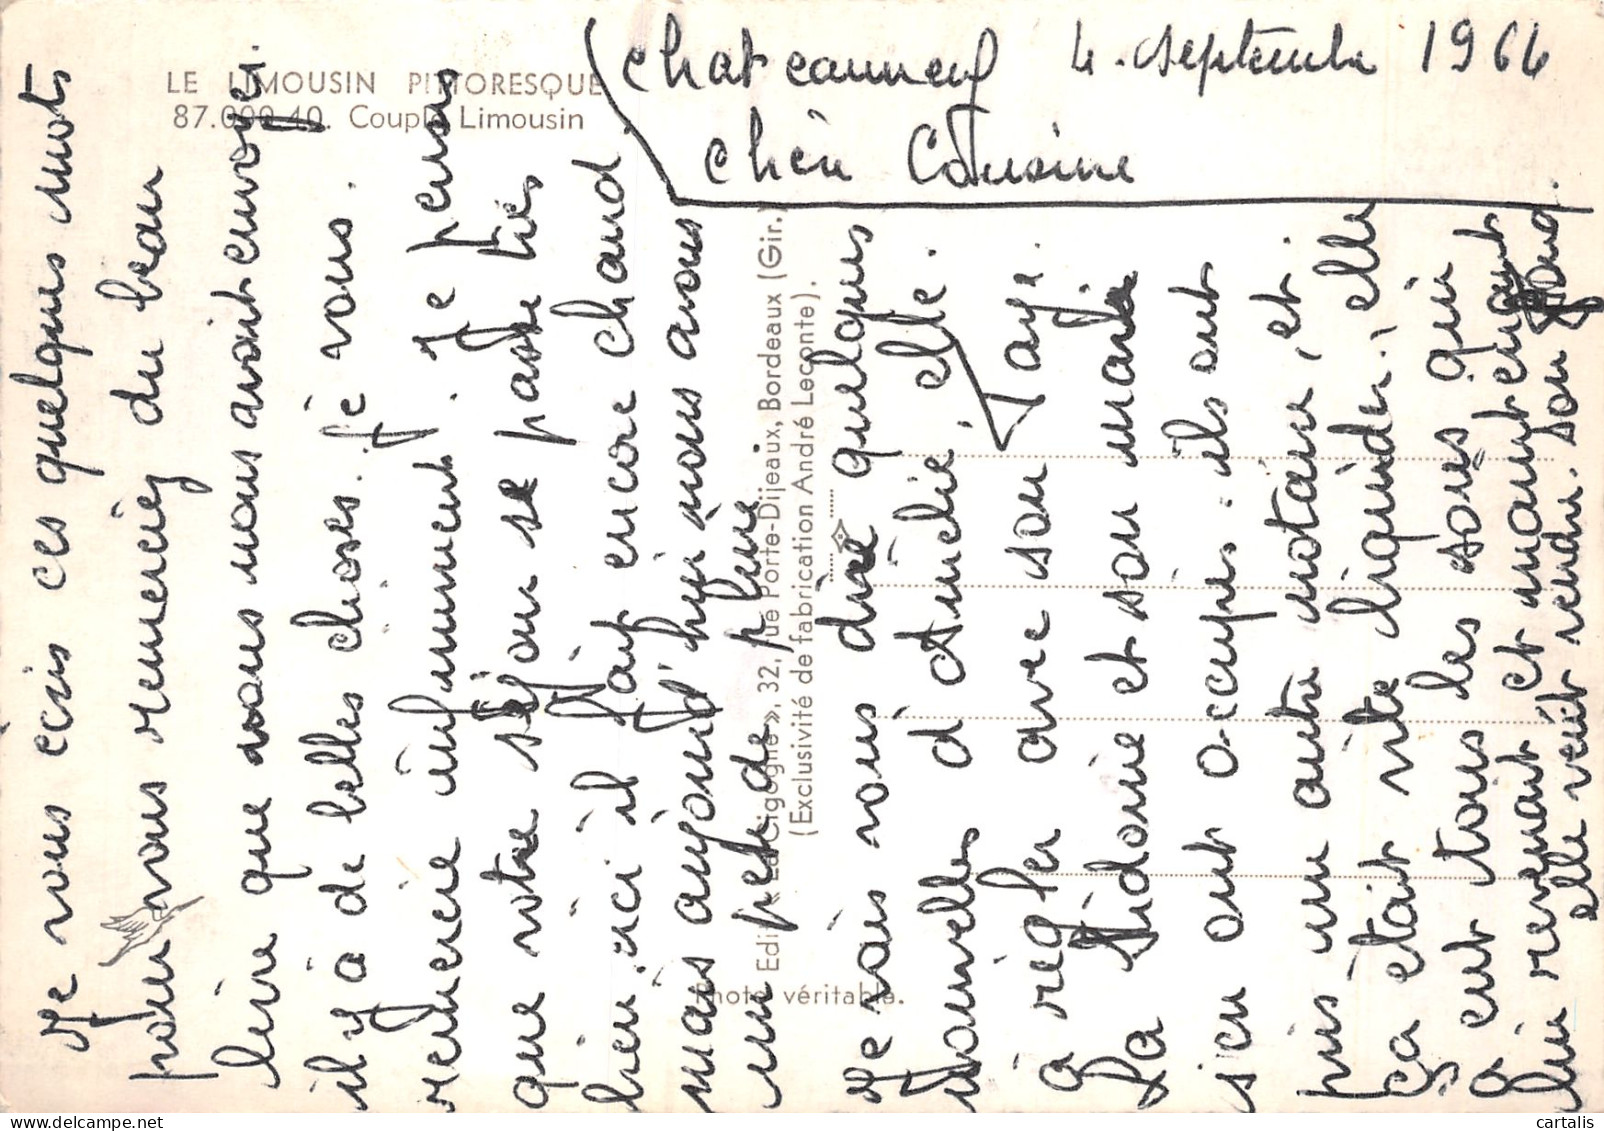 LE LIMOUSIN PITTORESQUE
87.000-40. Couple Limousin
Chateauneuf 4. septembre 1964
Chère Cousine
Je vous écris ces quelques mots
pour vous remercier du beau
livre que vous nous avoit envoyer.
il y a de belles choses. je vous
remercie infiniment. Je pense
que votre séjour se passe très
bien, ici il fait encore chaud
mais aujourd'hui nous avons
un peu de pluie.
Je vais vous dire quelques
Nouvelles d'Amélie, elle
a régler avec son Taye.
La Sidonie et son maria
s'en ont occuper. ils ont
pris un autre notaire, et
ça était vite liquider, elle
a eut tous les sous qui
lui revenait et maintenant
elle veut vendre son
Edit. « La Cigogne », 32, rue Porte-Dijeaux, Bordeaux (Gir.)
(Exclusivité de fabrication André Leconte).
Photo véritable.
cartalis